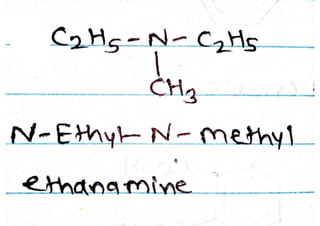 C2H5-N-C2H5
|
CH3
N-Ethyl-N-methyl
ethanamine